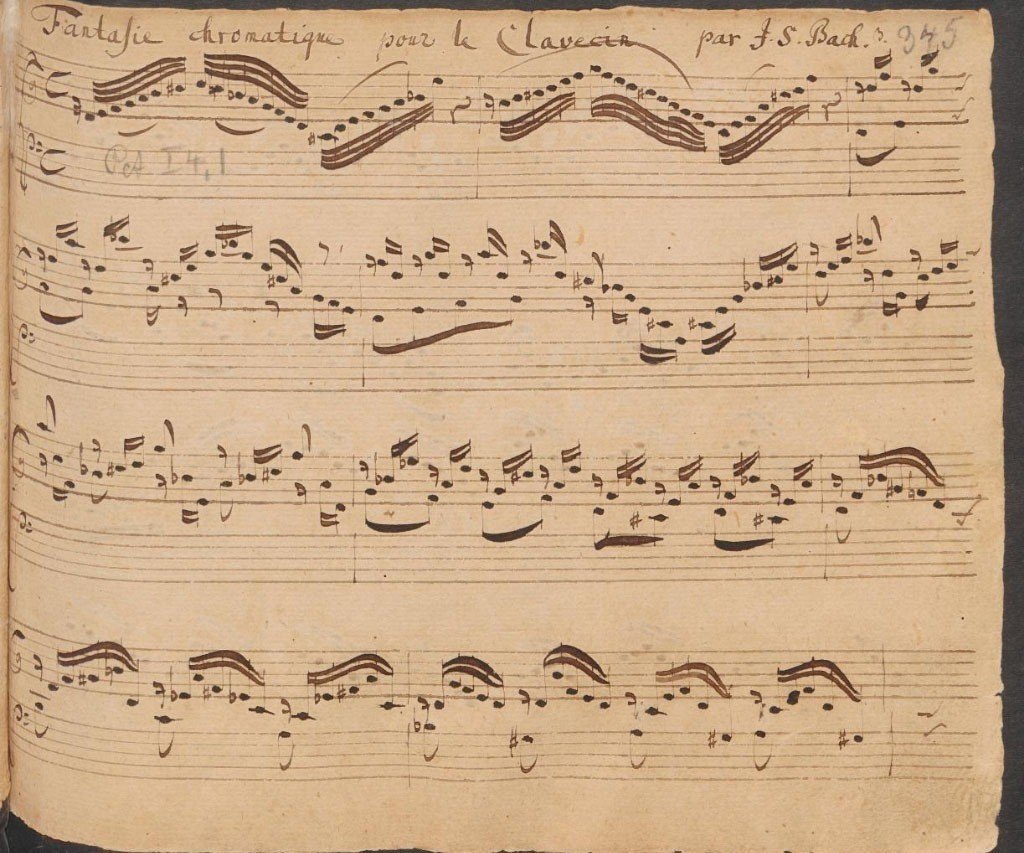 Fantasie chromatique pour le Clavecin par J. S. Bach. 345
Pct I 4,1